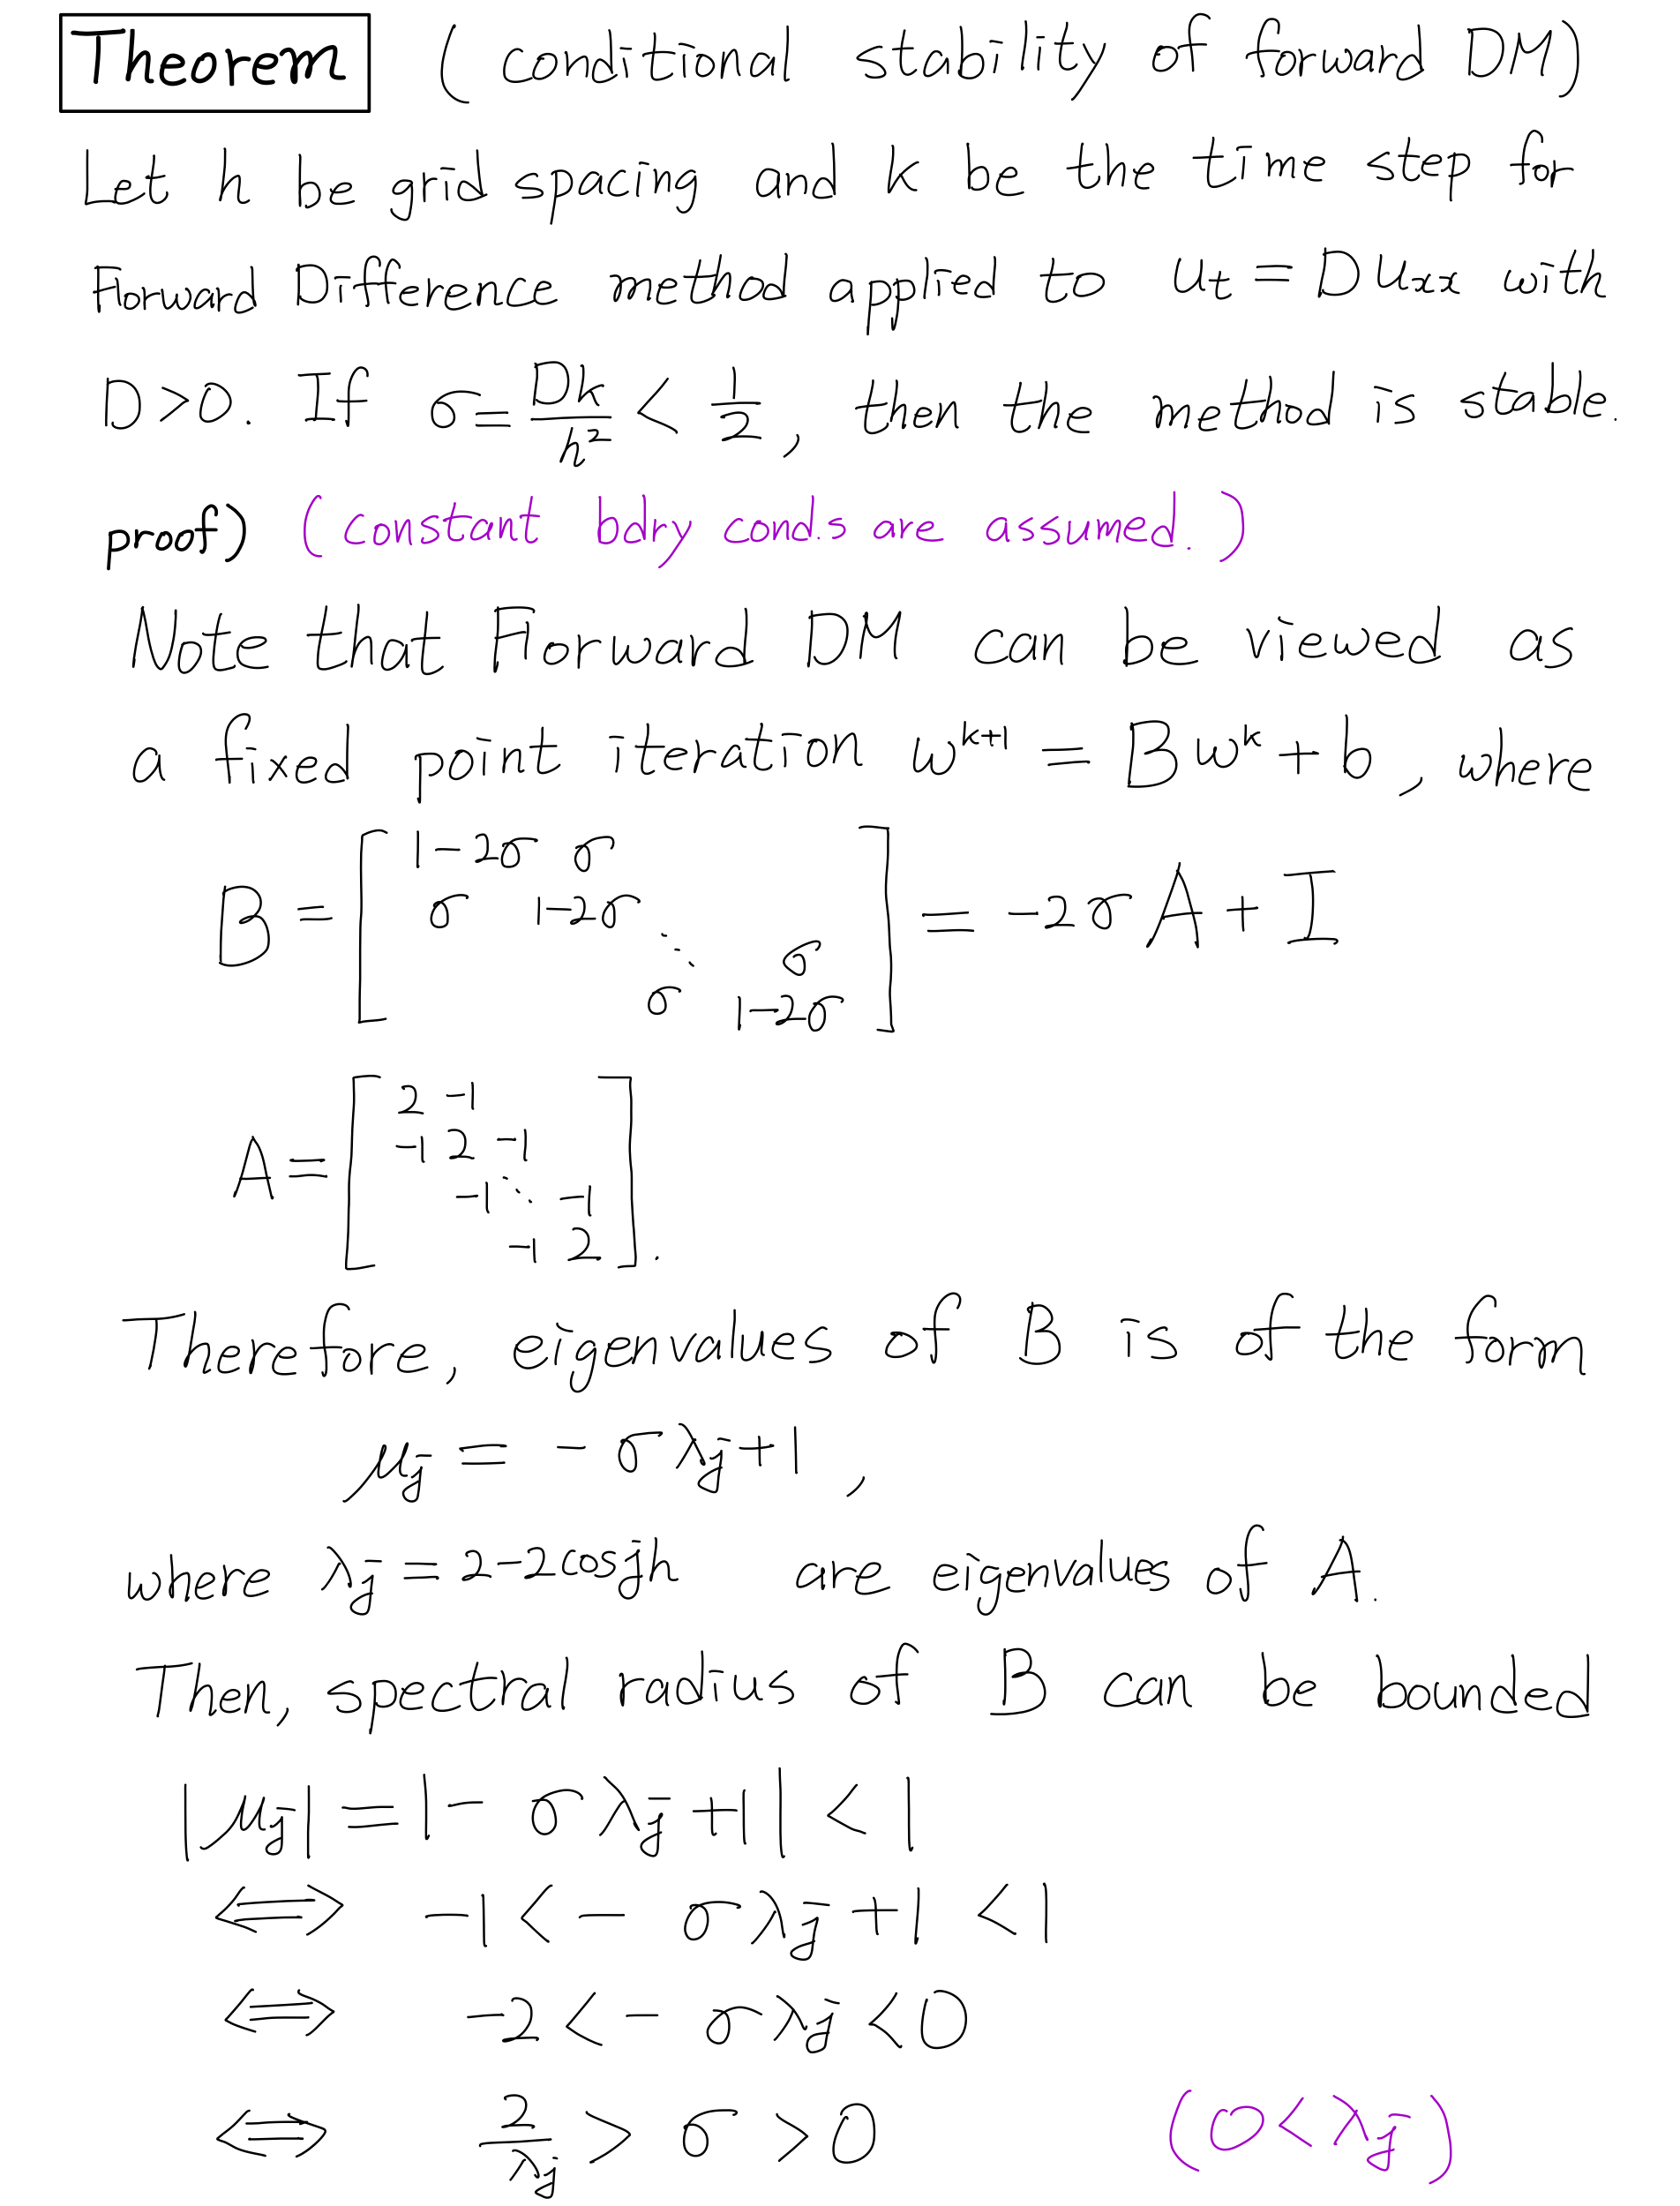 Theorem ( conditional stability of forward DM)
Let h be grid spacing and k be the time step for
Forward Difference method applied to u_t = D u_xx with
D>0. If σ = Dk/h² < 1/2, then the method is stable.
proof) (constant bdry conds are assumed.)
Note that Forward DM can be viewed as
a fixed point iteration w^{k+1} = B w^k + b, where
B = [ 1-2σ σ
σ 1-2σ
⋱ σ
σ 1-2σ ] = -2σA + I
A = [ 2 -1
-1 2 -1
-1 ⋱ -1
-1 2 ].
Therefore, eigenvalues of B is of the form
μ_j = - σλ_j + 1,
where λ_j = 2-2cosjh are eigenvalues of A.
Then, spectral radius of B can be bounded
|μ_j| = |- σλ_j + 1| < 1
⟺ -1 < - σλ_j + 1 < 1
⟺ -2 < - σλ_j < 0
⟺ 2/λ_j > σ > 0 (0<λ_j)